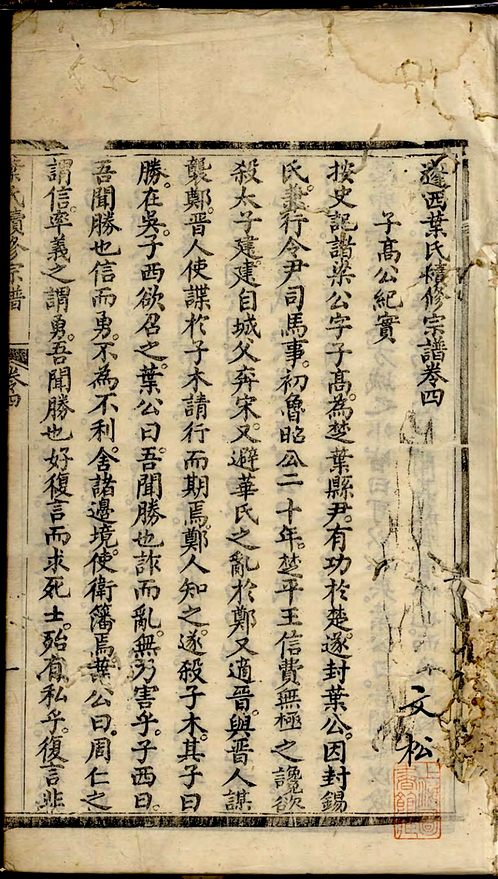 蓮西葉氏續修宗譜卷四
子髙公紀實
文松
按史記諸梁公字子髙為楚葉縣尹有功於楚遂封葉公因封錫
氏兼行令尹司馬事初魯昭公二十年楚平王信費無極之讒欲
殺太子建建自城父奔宋又避華氏之亂於鄭又適晉與晉人謀
襲鄭晉人使諜於子木請行而期焉鄭人知之遂殺子木其子曰
勝在吳子西欲召之葉公曰吾聞勝也詐而亂無乃害乎子西曰
吾聞勝也信而勇不為不利舍諸邊境使衛籓焉葉公曰周仁之
謂信率義之謂勇吾聞勝也好復言而求死士殆有私乎復言非
葉氏續修宗譜 卷四